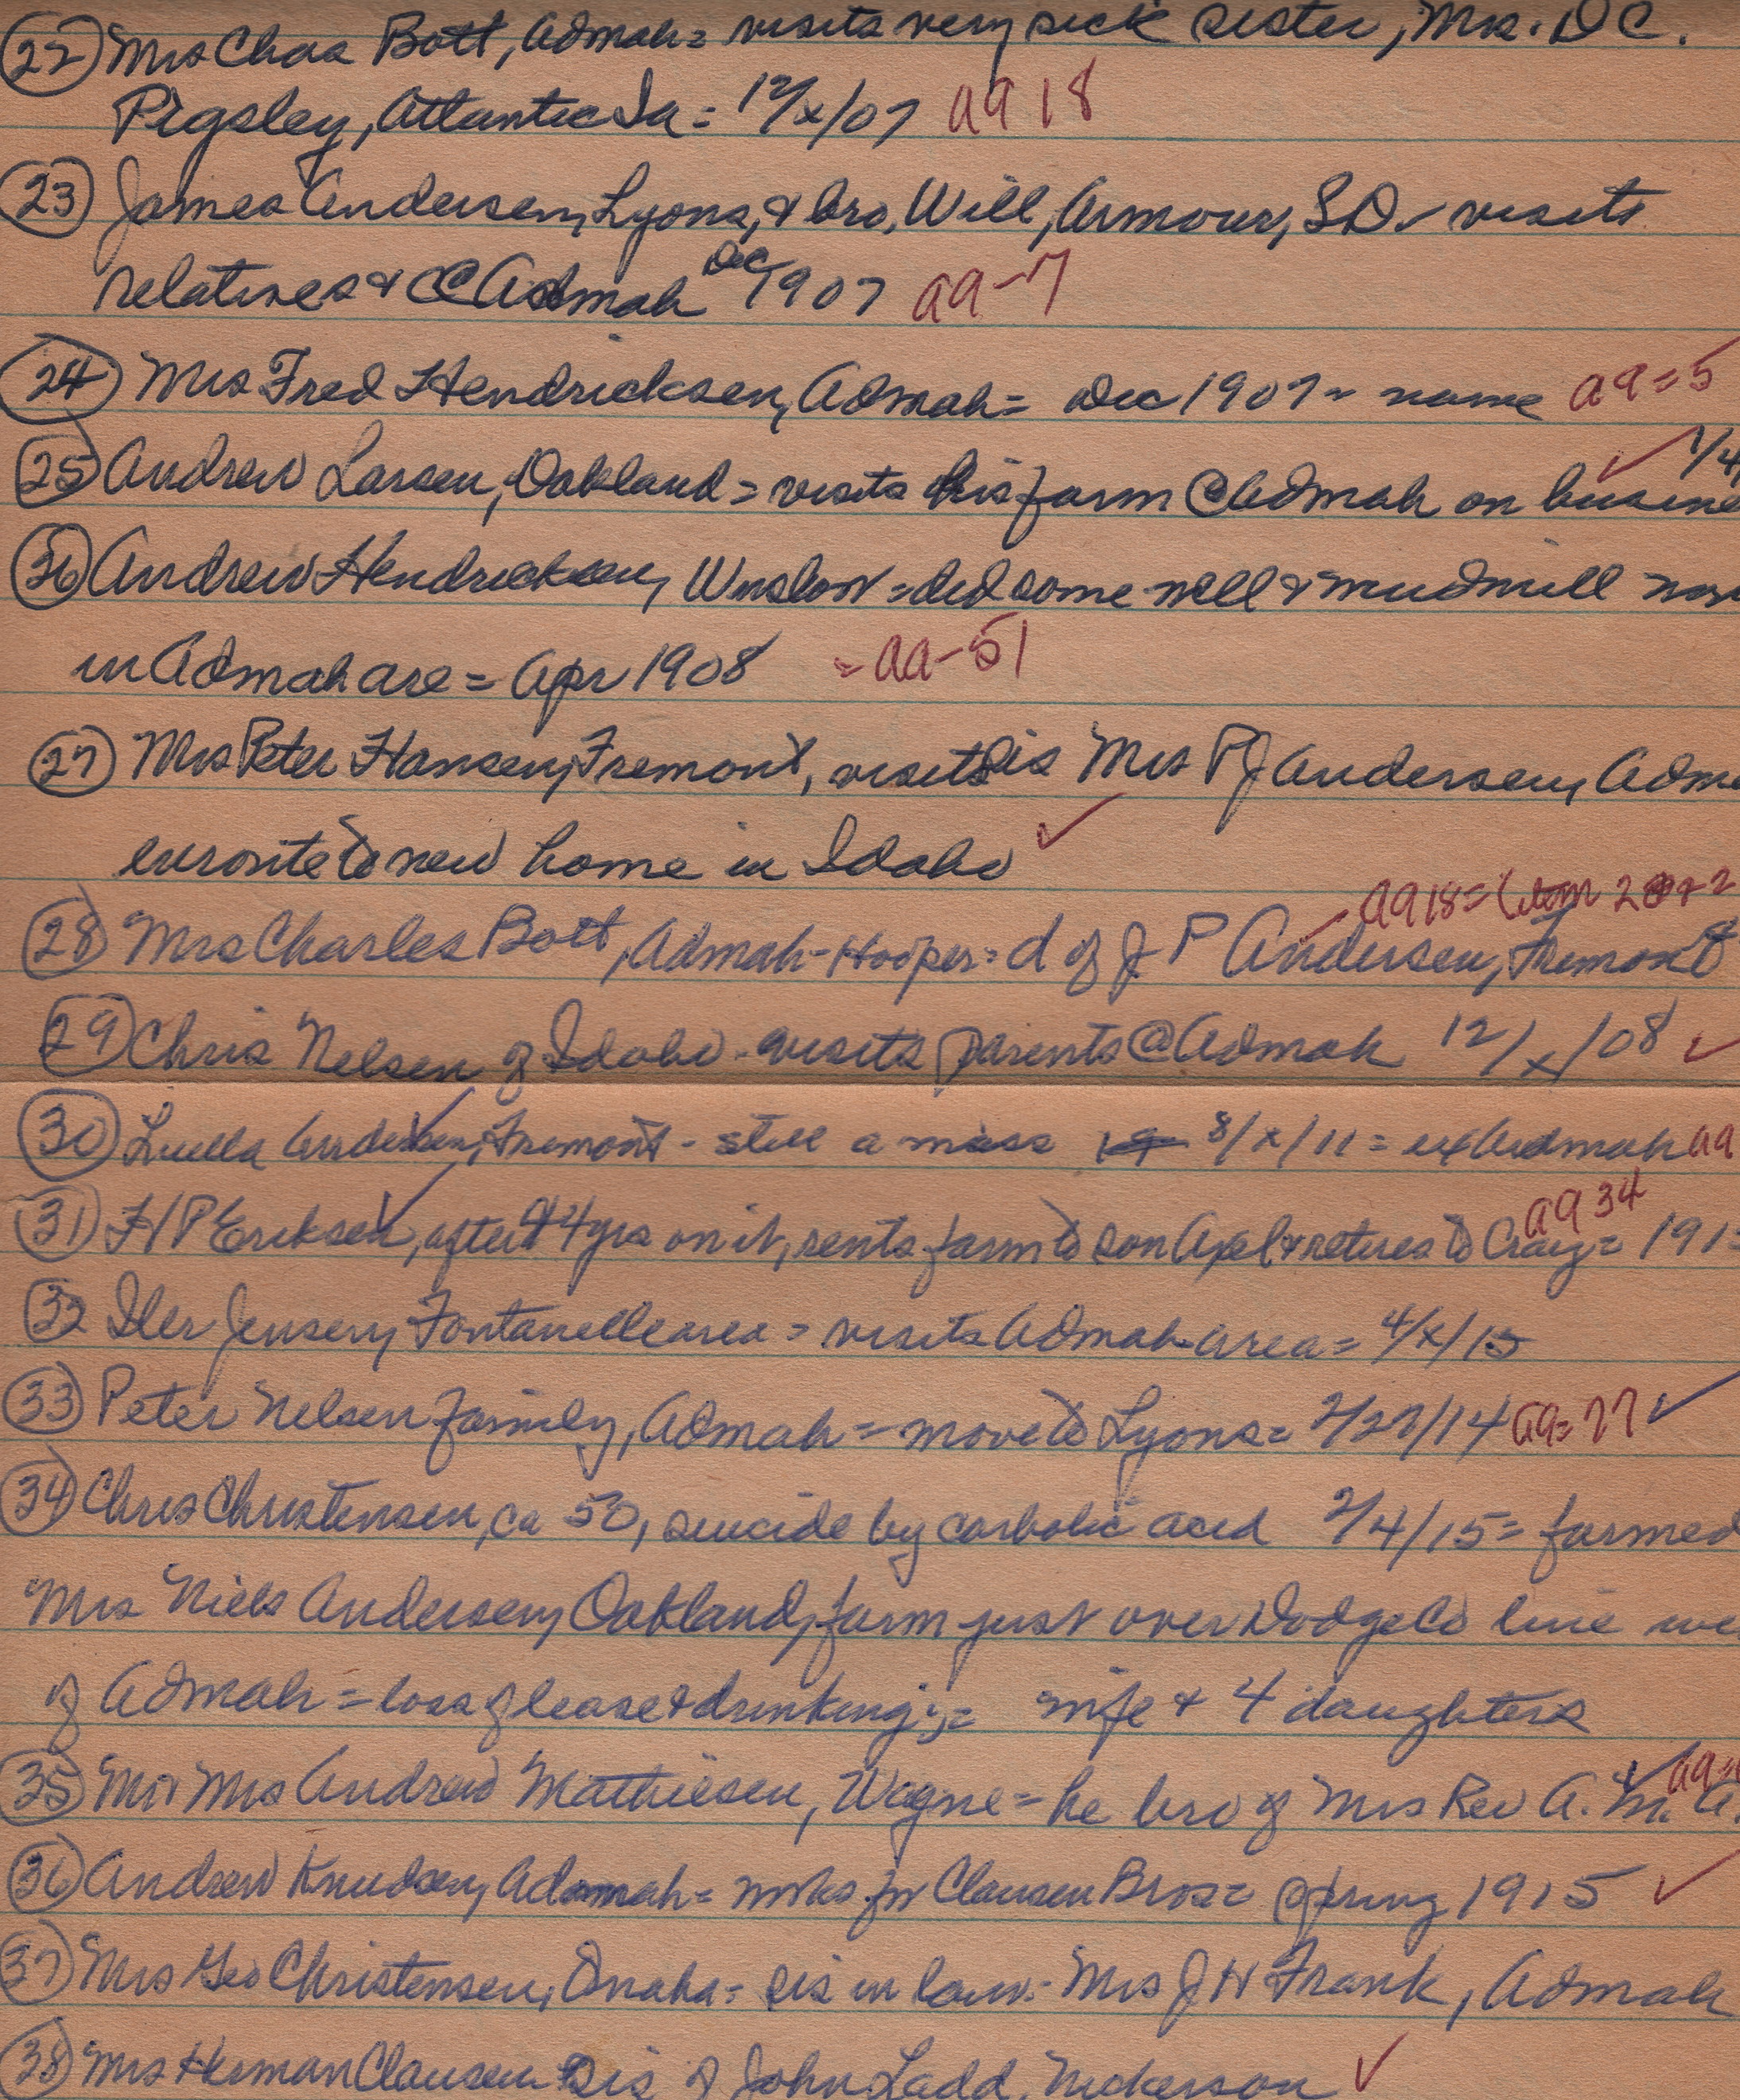 (22) Mrs Chas Bott, Admah = visits very sick sister, Mrs. D C.
Pigsley, Atlantic Ia = 12/x/07 aa 18
(23) James Andersen, Lyons, & bro, Will, Armour, SD - visits
relatives & @ Admah Dec 1907 aa-7
(24) Mrs Fred Hendricksen, Admah = Dec 1907 = name aa=5
(25) Andrew Larsen, Oakland = visits his farm @ Admah on busine 1/4/
(26) Andrew Hendricksen, Winslow = did some well & windmill wor
in Admah are = Apr 1908 = aa-51
(27) Mrs Peter Hansen, Fremont, visits sis Mrs P J Andersen, Adma
enroute to new home in Idaho
aa 18 = item 22
(28) Mrs Charles Bott, Admah-Hooper = d of J P Andersen, Fremont
(29) Chris Nelsen of Idaho - visits parents @ Admah 12/x/08
(30) Luella Andersen, Fremont - still a miss 8/x/11 = ex Admah aa
(31) H P Eriksen, after 44 yrs on it, rents farm to son Axel & retires to Craig = 191 aa 34
(32) Iler Jensen, Fontanelle area = visits Admah area = 4/x/15
(33) Peter Nelsen family, Admah = move to Lyons = 2/27/14 aa=77
(34) Chris Christensen, ca 50, suicide by carbolic acid 2/4/15 = farmed
Mrs Niels Andersen, Oakland, farm just over Dodge Co line we
of Admah = loss of lease & drinking; = wife & 4 daughters
(35) Mr & Mrs Andrew Mathiesen, Wagne = he bro of Mrs Rev A. M. A. aa=
(36) Andrew Knudsen, Admah = works for Clausen Bros = spring 1915
(37) Mrs Geo Christensen, Omaha = sis in law = Mrs J H Frank, Admah
(38) Mrs Herman Clausen sis of John Ladd, Nickerson